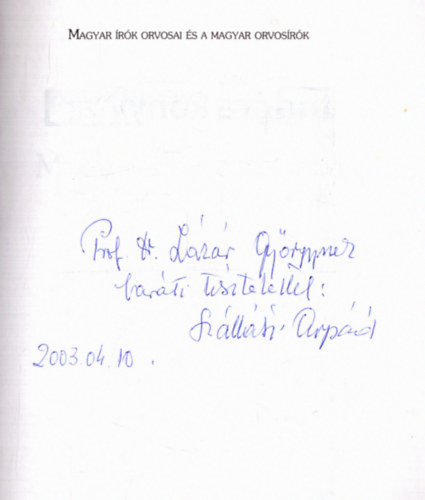 MAGYAR ÍRÓK ORVOSAI ÉS A MAGYAR ORVOSÍRÓK
Prof. Dr. Lázár Györgynek
baráti tisztelettel:
Szállási Árpád
2003.04.10.